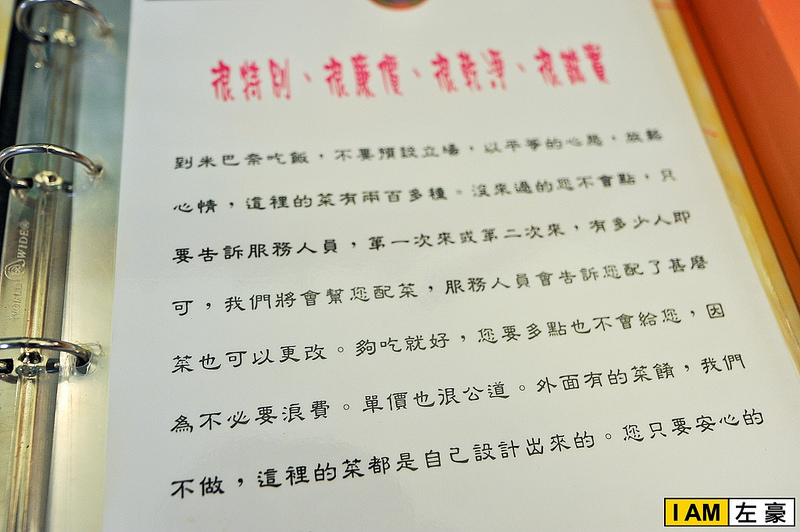 很特別、很廉價、很乾淨、很誠實
到米巴奈吃飯，不要預設立場，以平等的心態，放鬆
心情，這裡的菜有兩百多種。沒來過的您不會點，只
要告訴服務人員，第一次來或第二次來，有多少人即
可，我們將會幫您配菜，服務人員會告訴您配了甚麼
菜也可以更改。夠吃就好，您要多點也不會給您，因
為不必要浪費。單價也很公道。外面有的菜餚，我們
不做，這裡的菜都是自己設計出來的。您只要安心的
WORLD WIDE
I AM 左豪